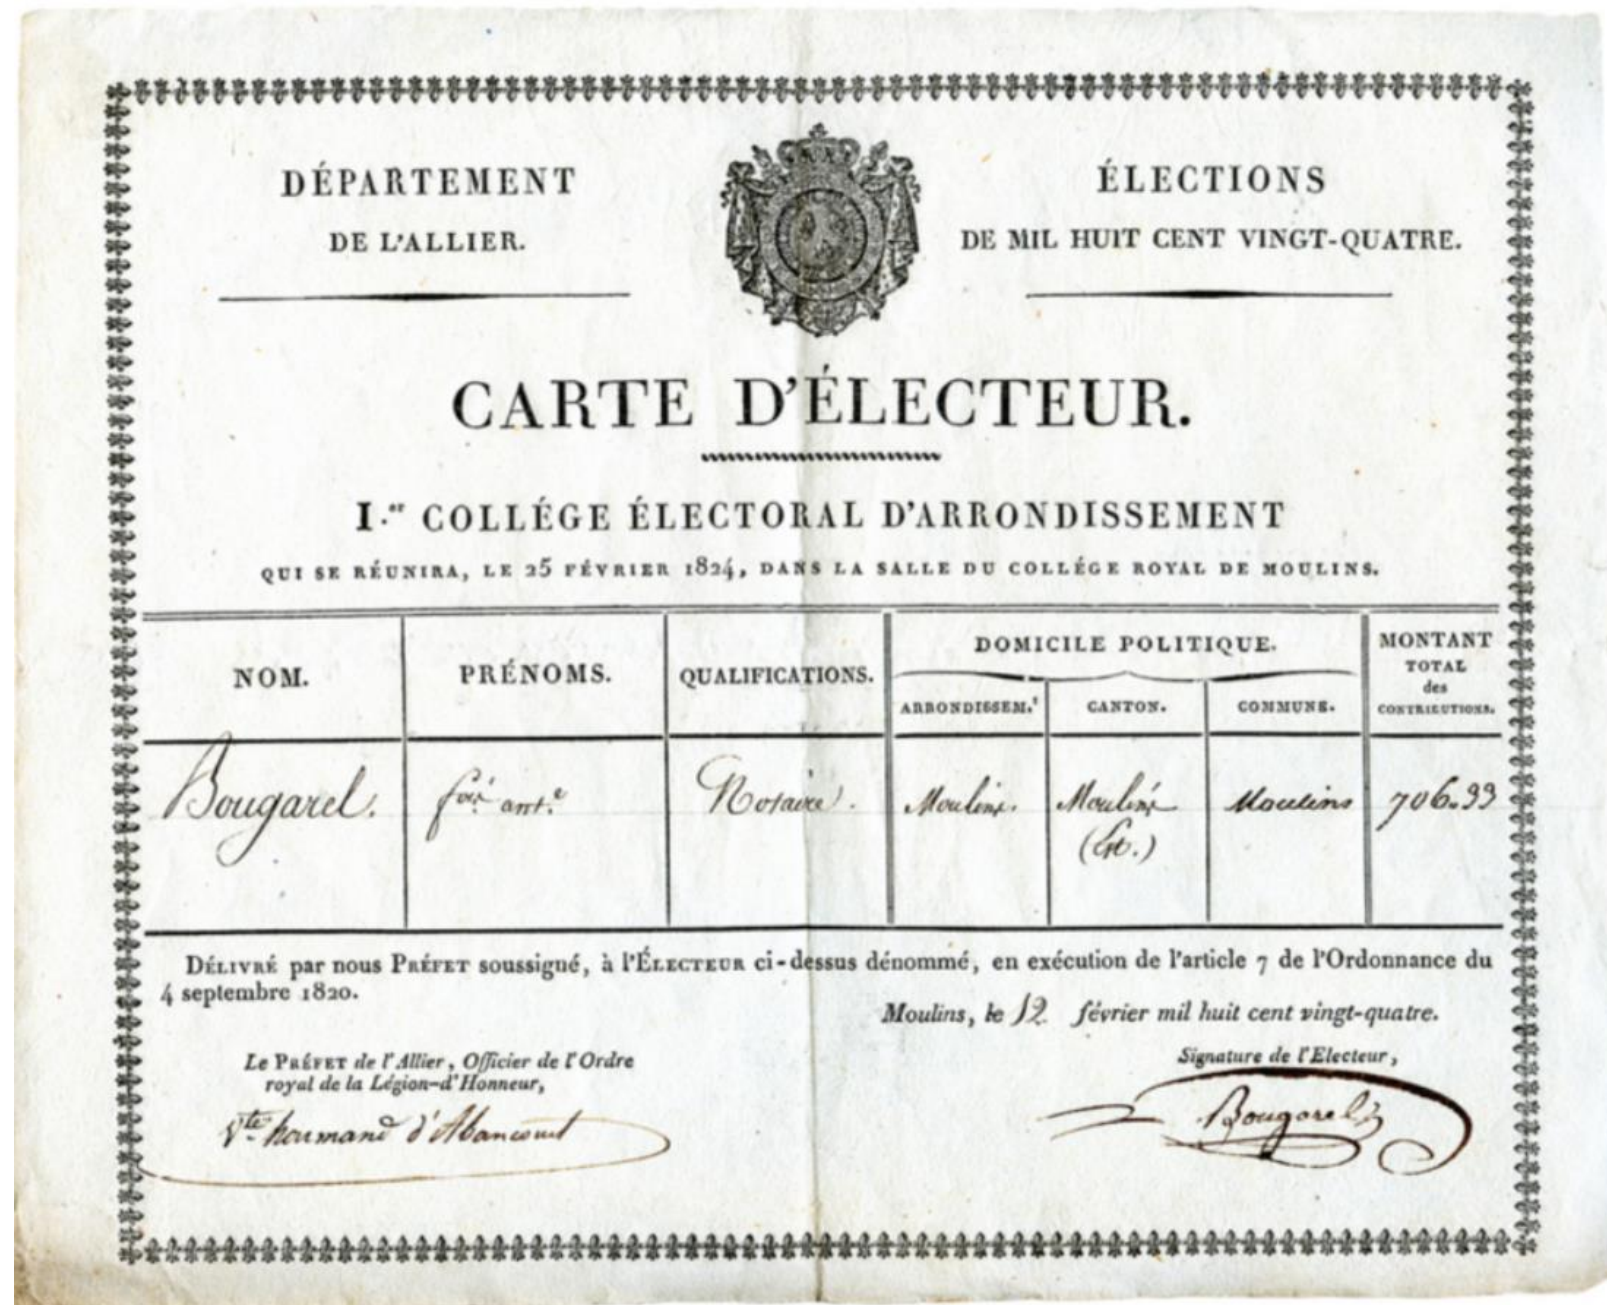 DÉPARTEMENT
DE L'ALLIER.
ÉLECTIONS
DE MIL HUIT CENT VINGT-QUATRE.
CARTE D'ÉLECTEUR.
I.er COLLÉGE ÉLECTORAL D'ARRONDISSEMENT
QUI SE RÉUNIRA, LE 25 FÉVRIER 1824, DANS LA SALLE DU COLLÉGE ROYAL DE MOULINS.
NOM.
PRÉNOMS.
QUALIFICATIONS.
DOMICILE POLITIQUE.
ARRONDISSEM.t
CANTON.
COMMUNE.
MONTANT
TOTAL
des
CONTRIBUTIONS.
Bougarel.
ant.e
Notaire.
Moulins.
Moulins
(Est.)
Moulins
706.33
DÉLIVRÉ par nous PRÉFET soussigné, à l'ÉLECTEUR ci-dessus dénommé, en exécution de l'article 7 de l'Ordonnance du
4 septembre 1820.
Moulins, le 12 février mil huit cent vingt-quatre.
Le PRÉFET de l'Allier, Officier de l'Ordre
royal de la Légion-d'Honneur,
Vte harmand d'Abancourt
Signature de l'Electeur,
Bougarel